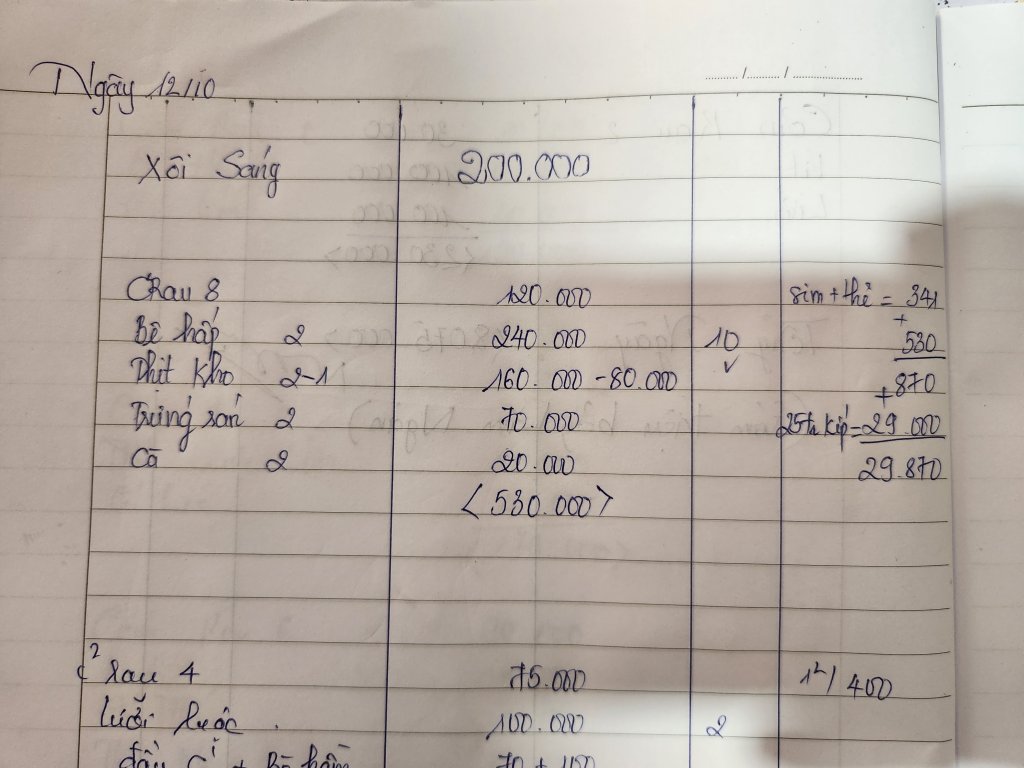 Ngày 12/10
Xôi Sáng 200.000
Rau 8 120.000 sim + thẻ = 341
Bê hấp 2 240.000 10 + 530
Thịt kho 2-1 160.000 - 80.000 ✓ + 870
Trứng rán 2 70.000 = 29.000
Cà 2 20.000 29.870
<530.000>
Rau 4 75.000 400
luộc 100.000 2
đầu + Bò hầm 70 + 100